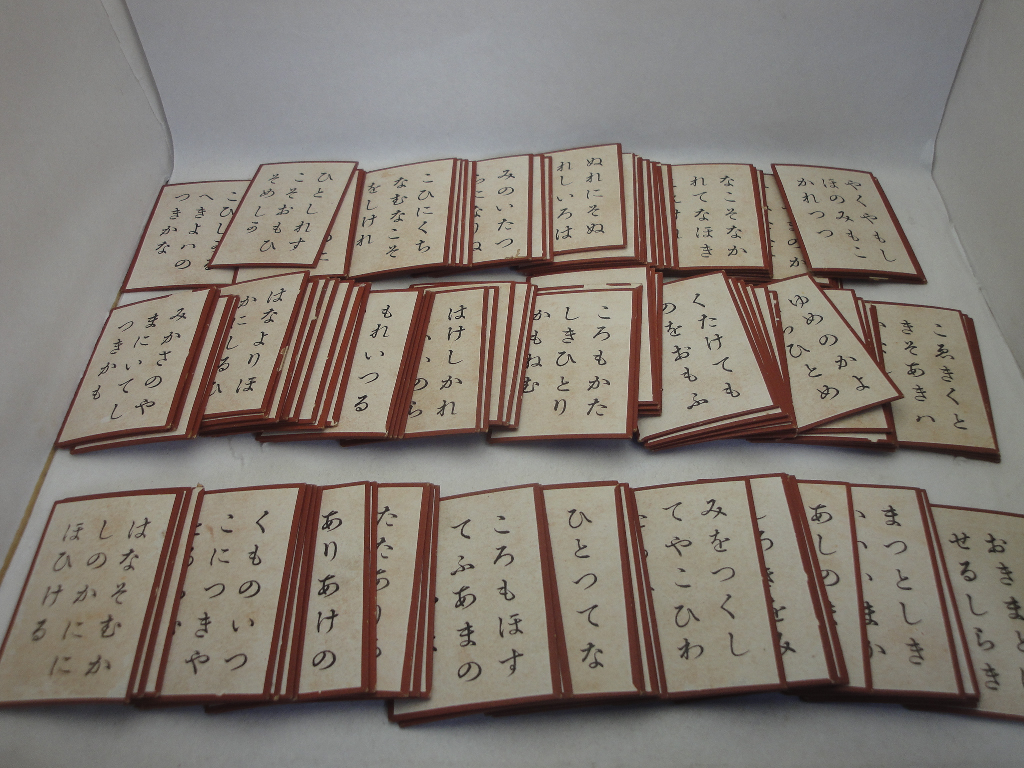 へきよハの
つきかな
ひとしれす
こそおもひ
そめしか
こひにくち
なむなこそ
をしけれ
みのいたつ
らになりぬ
ぬれにそぬ
れしいろは
なこそなか
れてなほき
やくやもし
ほのみもこ
かれつつ
みかさのや
まにいてし
つきかも
はなよりほ
かにしるひ
もれいつる
はけしかれ
ころもかた
しきひとり
かもねむ
くたけても
のをおもふ
ゆめのかよ
ひとめ
こゑきくと
きそあきハ
はなそむか
しのかにに
ほひける
くものいつ
こにつきや
ありあけの
たたあり
ころもほす
てふあまの
ひとつてな
みをつくし
てやこひわ
あしの
まつとしき
まか
おきまと
せるしらき